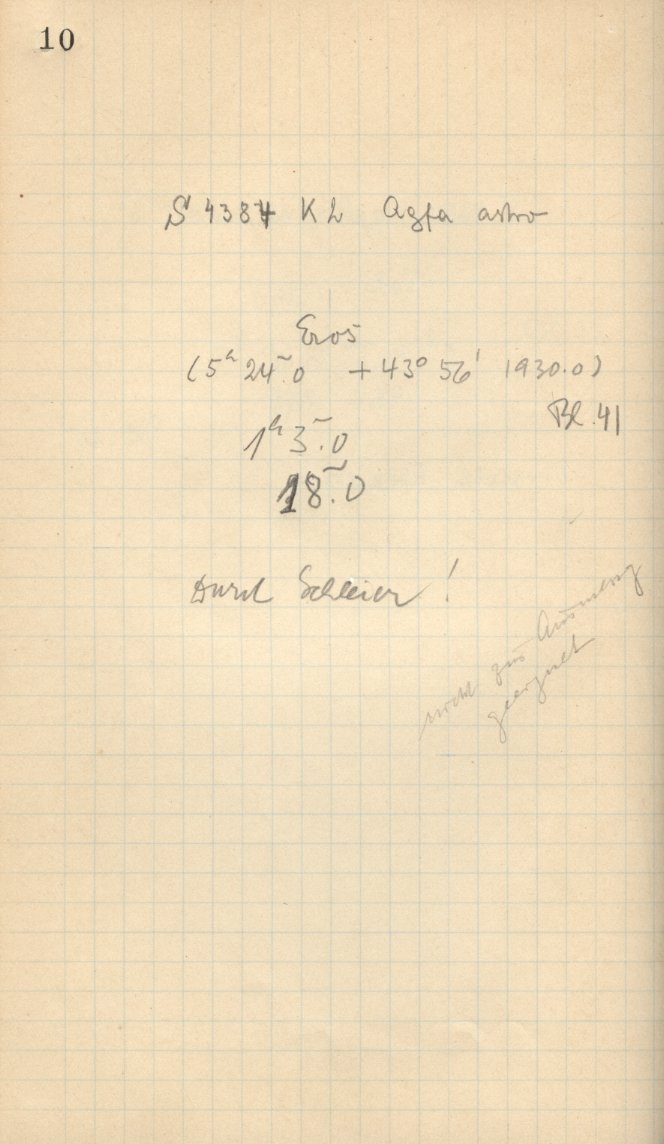 10
S 4384 K2 Agfa astro
Eros
(5ʰ 24ᵐ.0 +43° 56' 1930.0)
Bl. 41
1ʰ 3ᵐ.0
18ᵐ.0
Durch Schleier!
nicht zur Ausmessg
geeignet